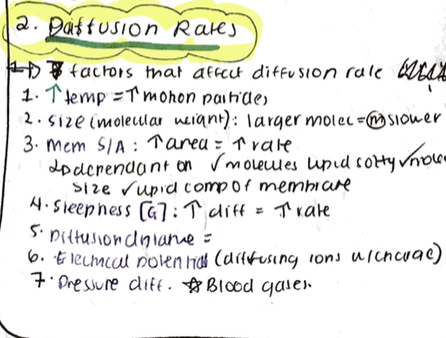 2. Diffusion Rates
7 factors that affect diffusion rate
1. ↑ temp = ↑ motion particles
2. size (molecular weight): larger molec = slower
3. mem S/A: ↑ area = ↑ rate
↳ dependant on ✓ molecules lipid solty ✓ molec
size ✓ lipid comp of membrane
4. steepness [G]: ↑ diff = ↑ rate
5. Diffusion distance =
6. Electrical potential (diffusing ions w/charge)
7. Pressure diff. ☆ Blood gases.